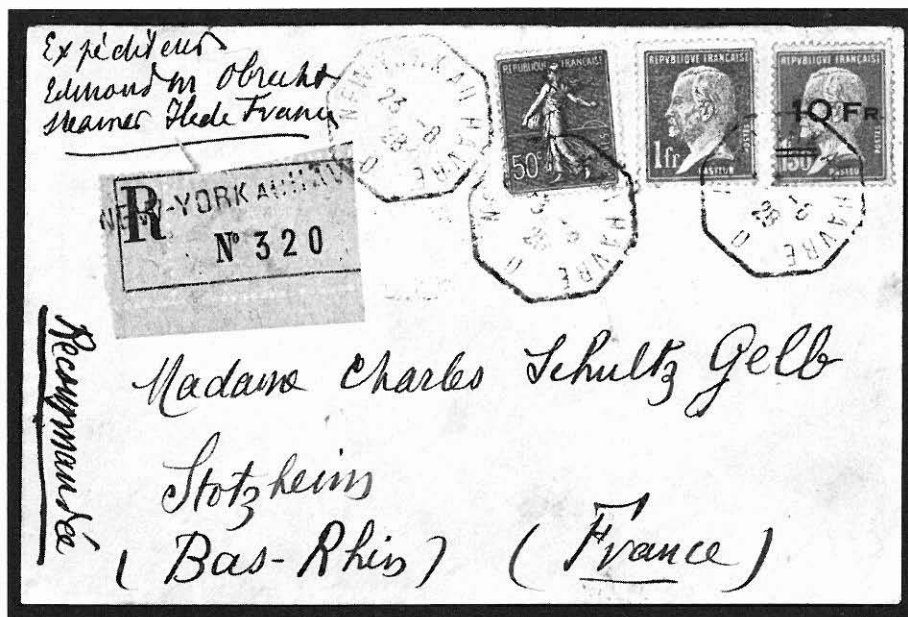 Expéditeur
Edmond M Obrecht
steamer Ile de France
NEW-YORK AU HAVRE D
23 -8
28
REPVBLIQUE FRANÇAISE
50c
REPVBLIQUE FRANÇAISE
1fr
POSTES
PASTEUR
REPVBLIQUE FRANÇAISE
10 FR.
1f50
POSTES
PASTEUR
HAVRE D
28 -8
HAVRE D
28 -8
R
NEW-YORK AU HAV
N° 320
Recommandée
Madame Charles Schultz Gelb
Stotzheim
(Bas-Rhin) (France)